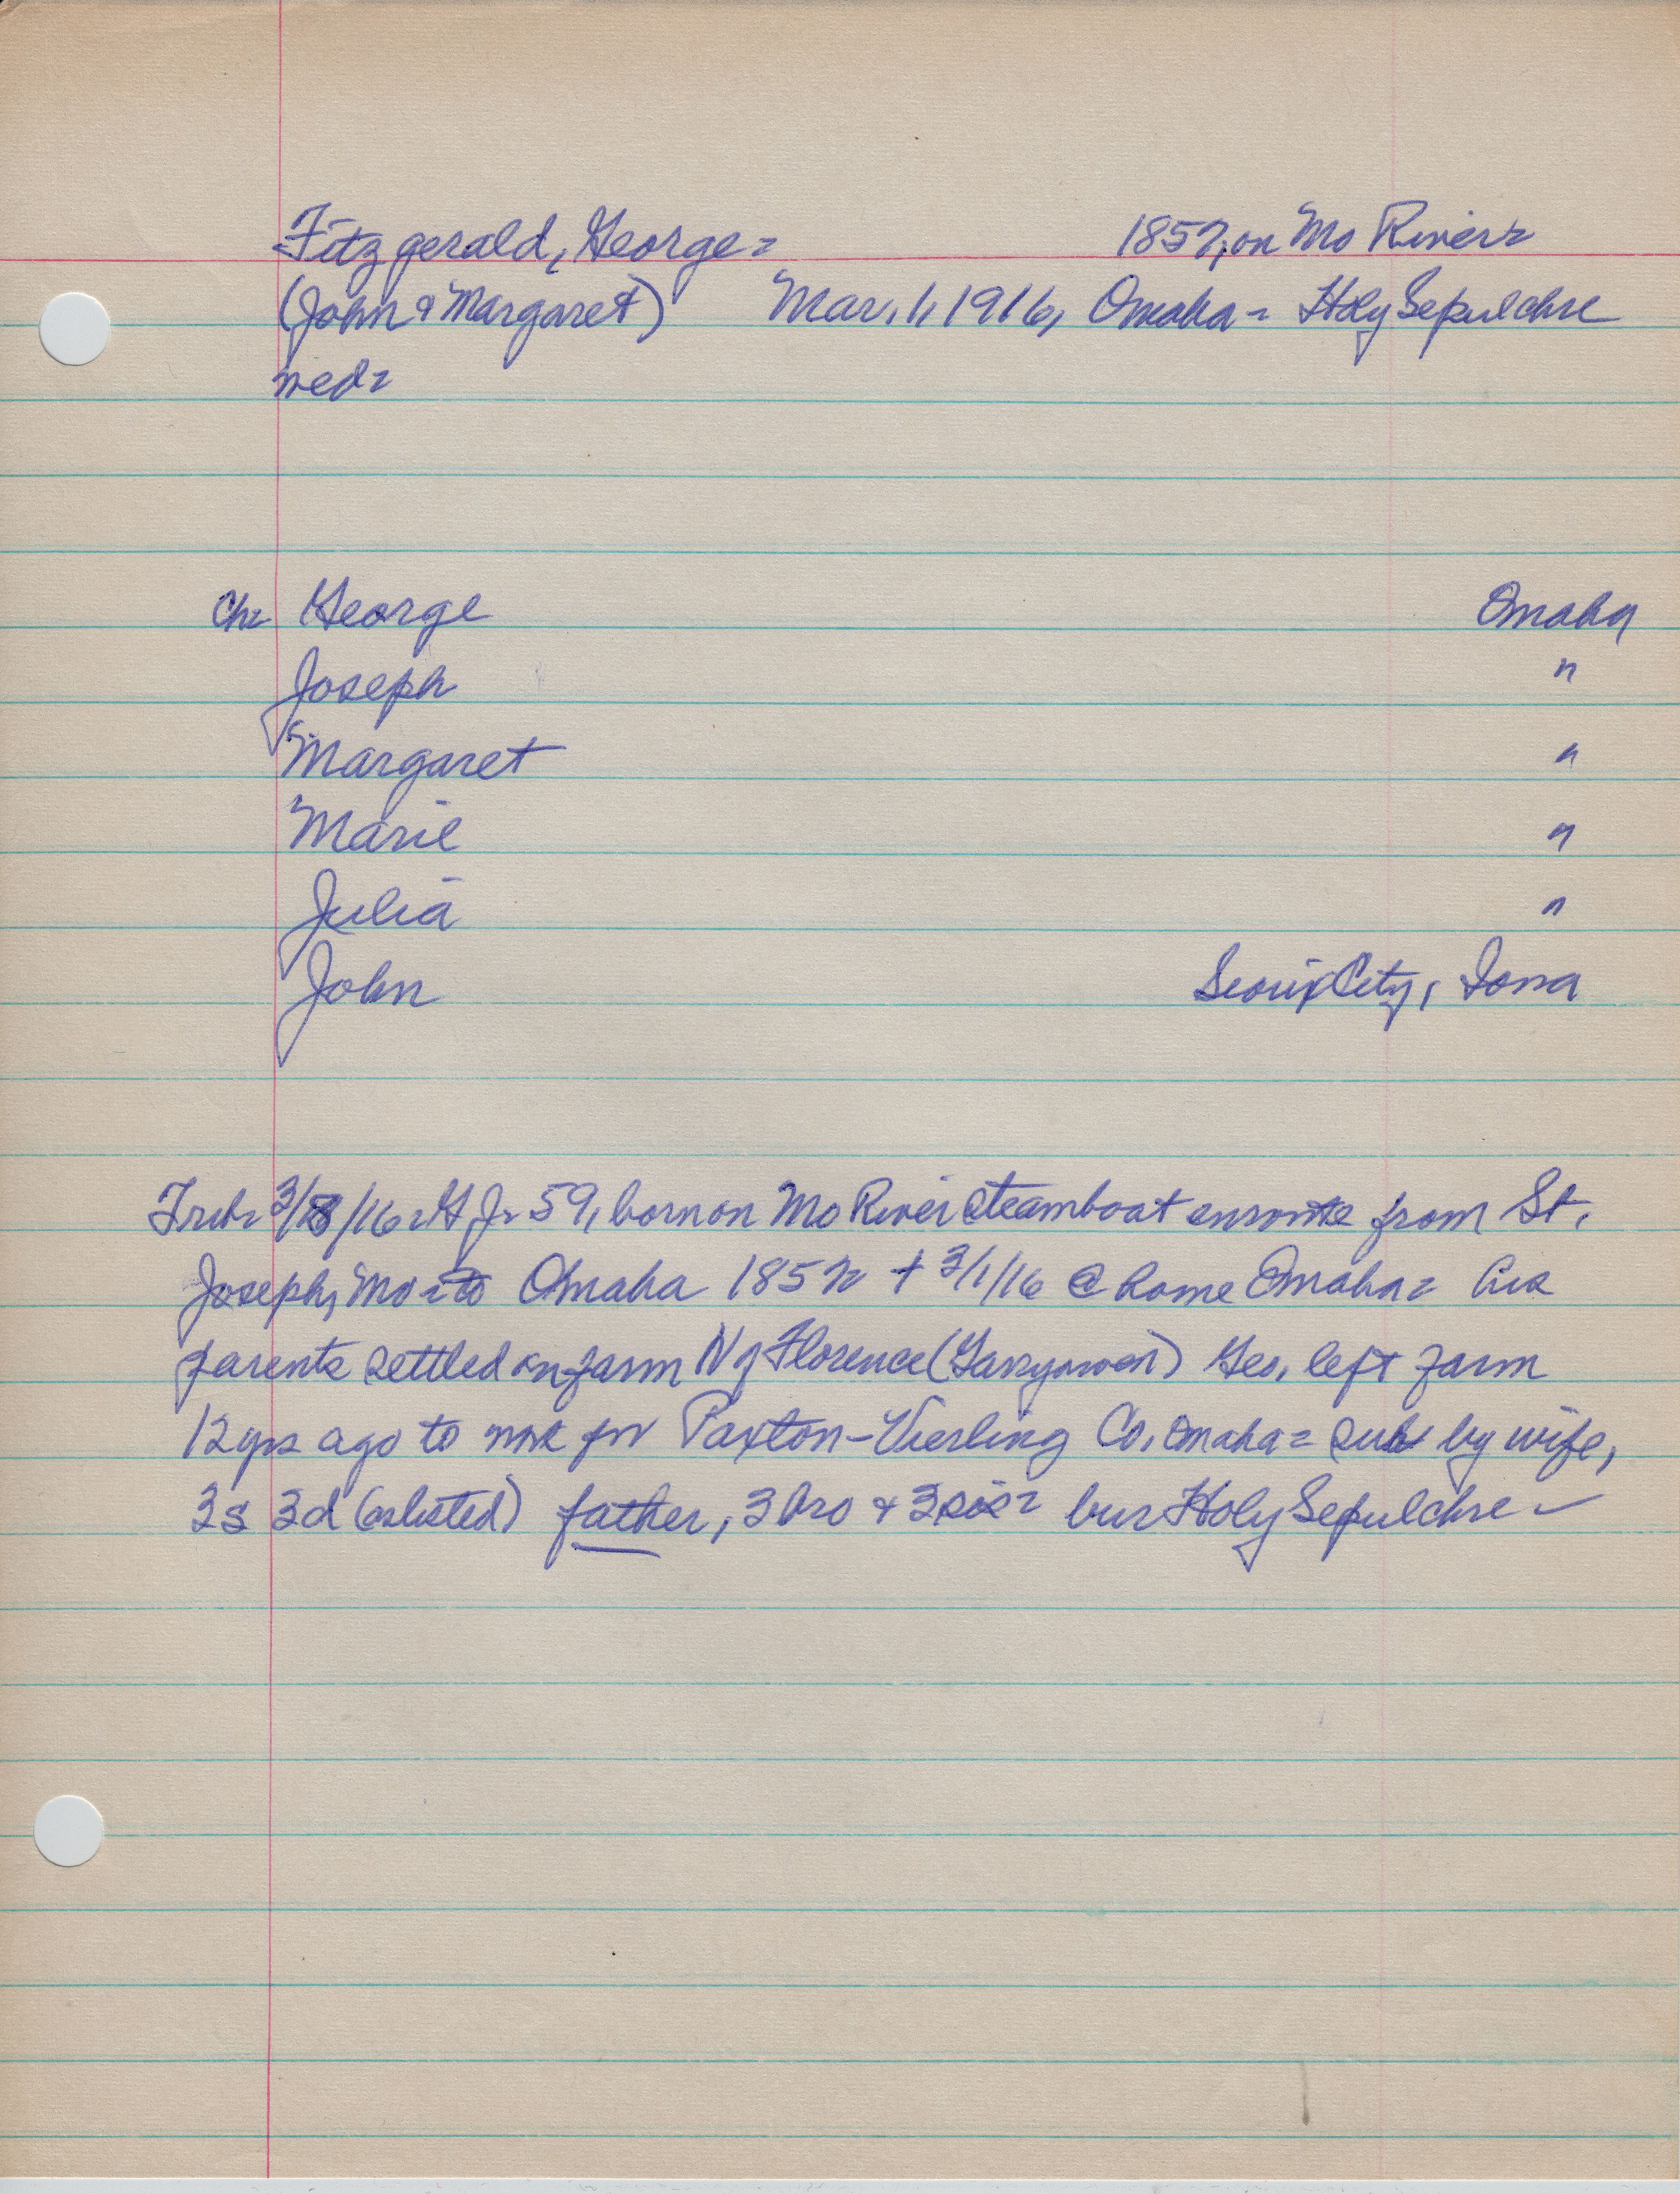 Fitzgerald, George = 1857, on Mo River =
(John & Margaret) Mar. 1, 1916, Omaha - Holy Sepulchre
wed =
Ch = George Omaha
Joseph "
Margaret "
Marie "
Julia "
John Sioux City, Iowa
3/18/16 = 59, born on Mo River steamboat enroute from St.
Joseph, Mo = to Omaha 1857 = + 3/1/16 @ home Omaha = his
parents settled on farm N of Florence (Garryowen) Geo. left farm
12 yrs ago to work for Paxton-Vierling Co. Omaha = sub by wife,
3s 3d (aslisted) father, 3 bro & 3 sis = bur Holy Sepulchre -